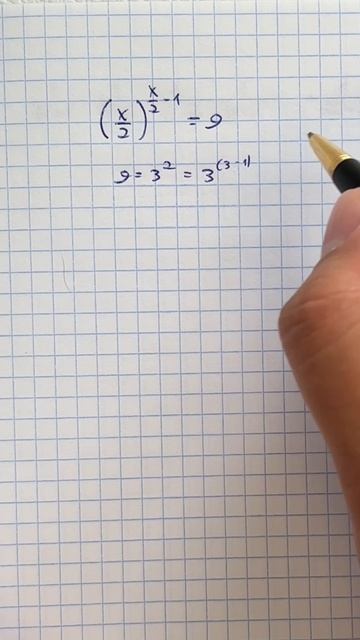 (x/2)^(x/2 - 1) = 9
9 = 3^2 = 3^(3-1)